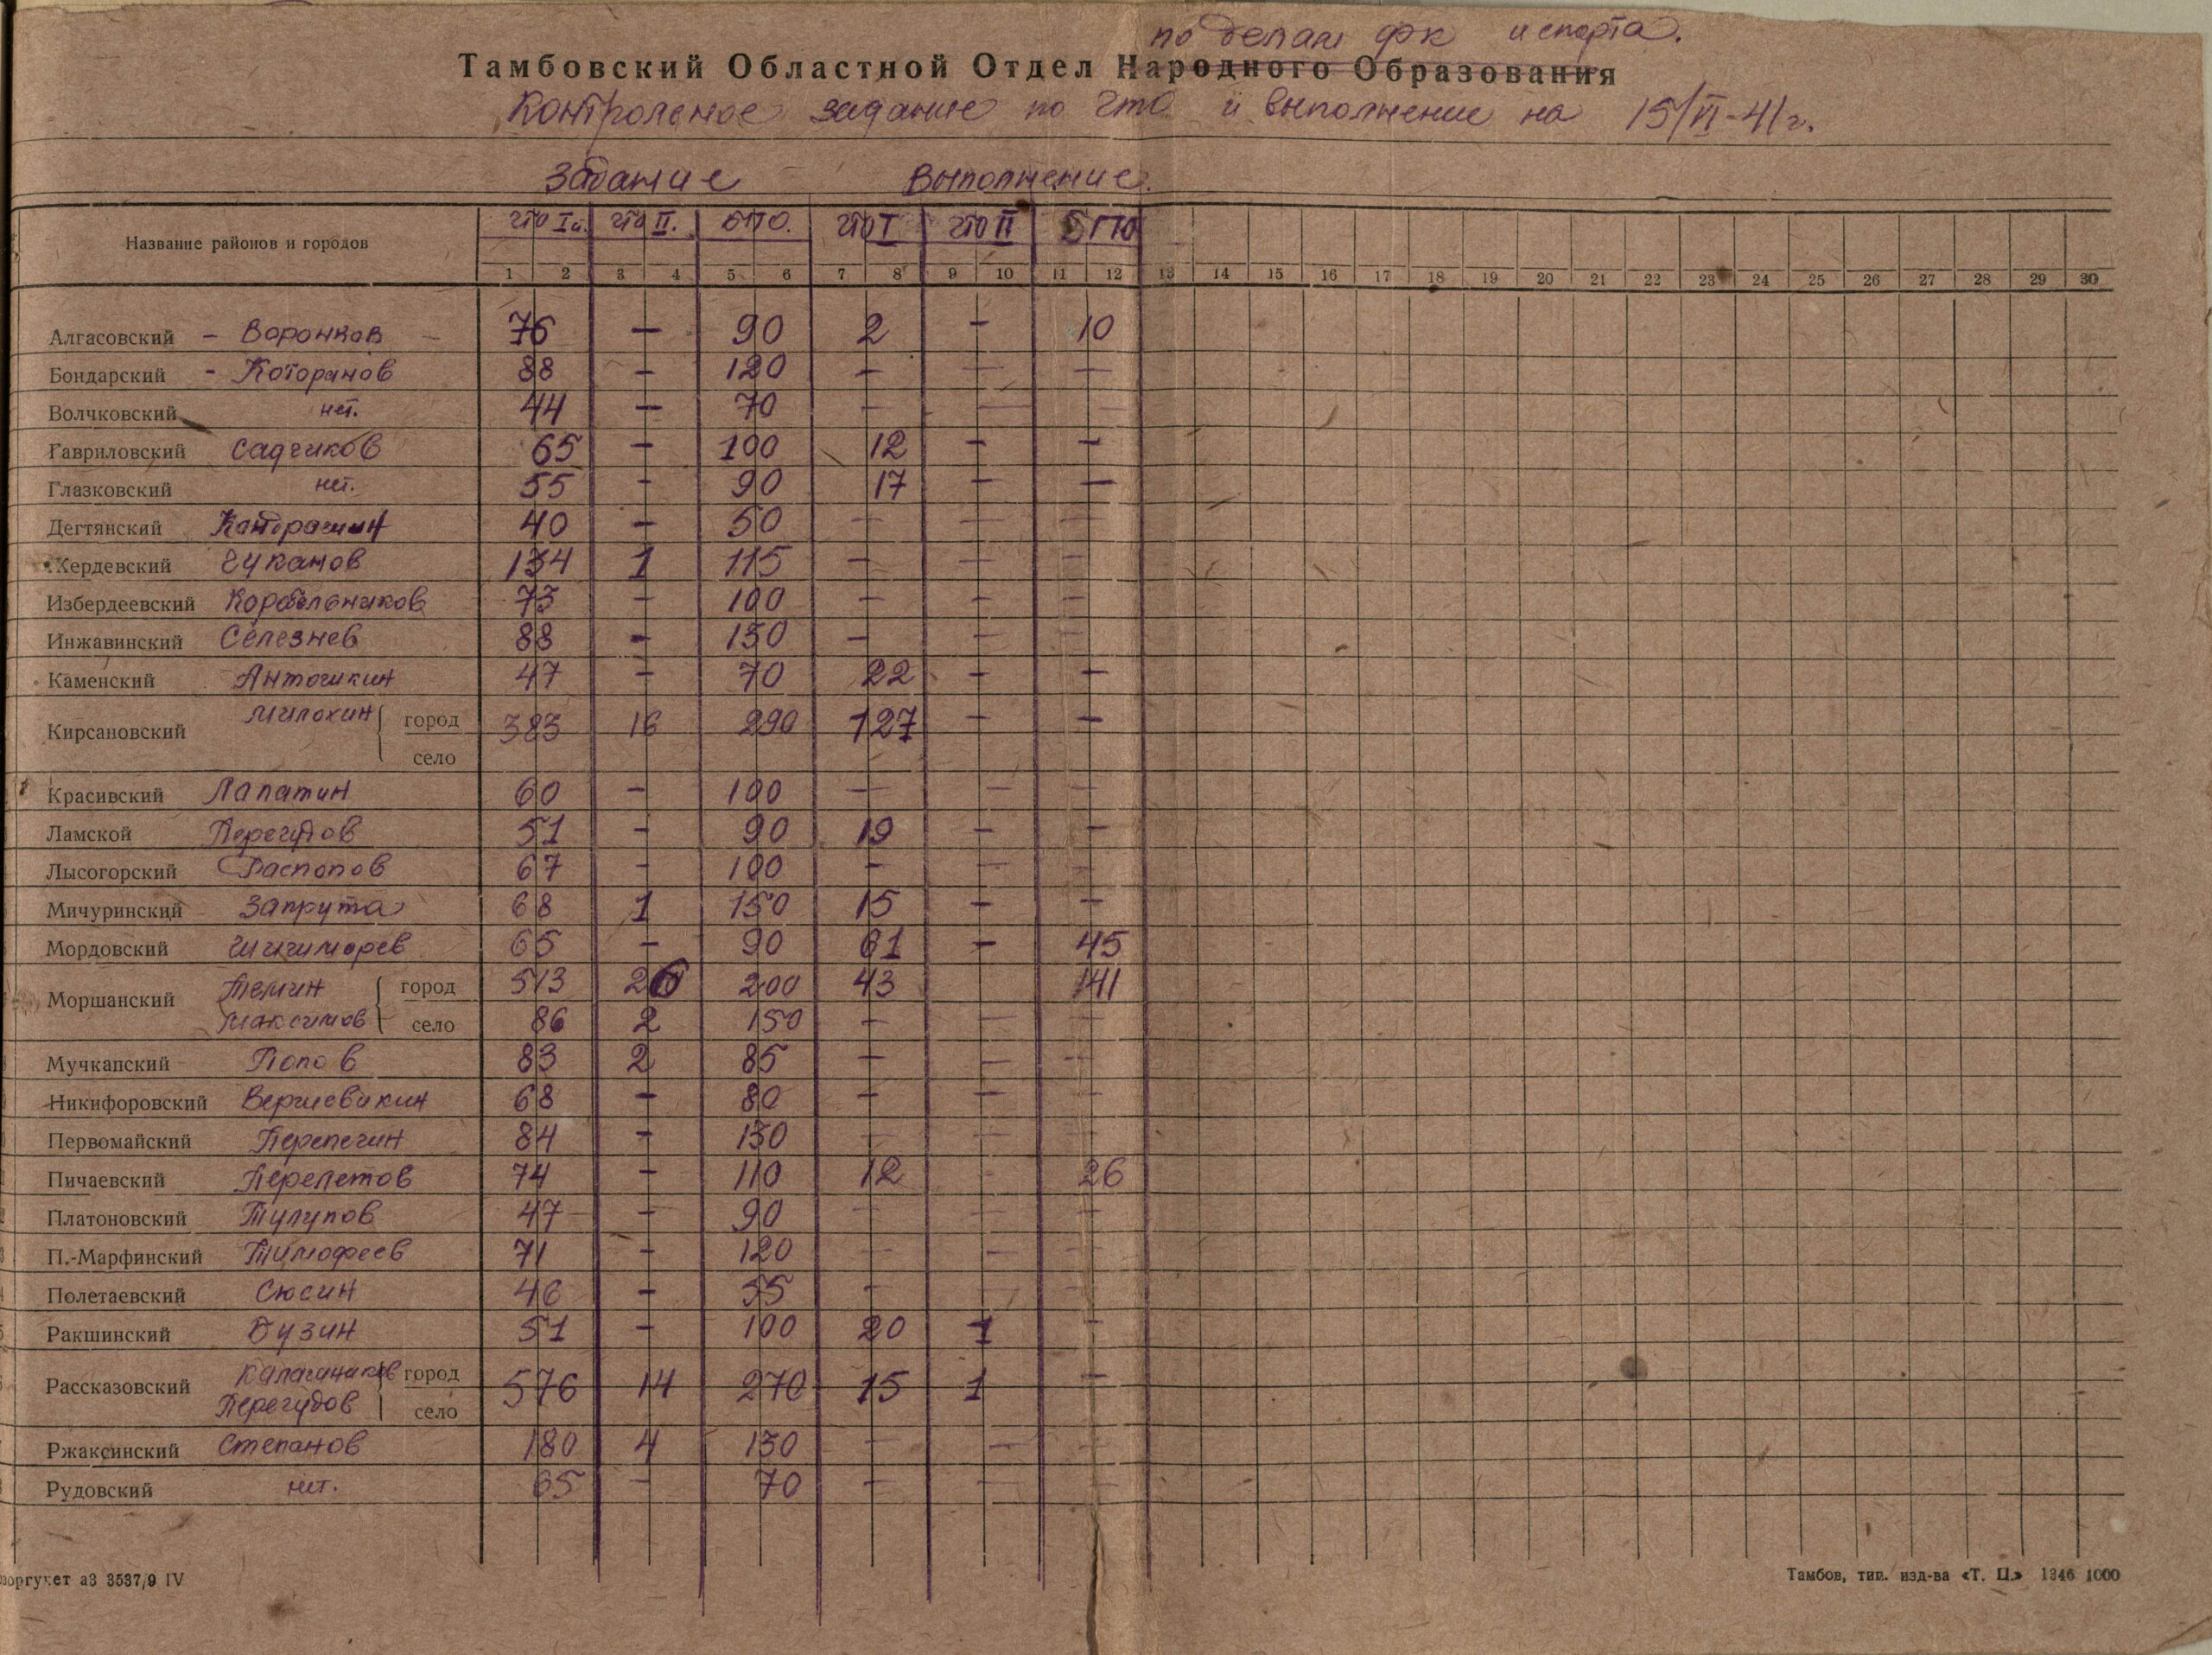 по делам фк и спорта.
Тамбовский Областной Отдел Народного Образования
Контрольное задание по ГТО и выполнение на 15/VI-41г.
Задание Выполнение.
Название районов и городов ГТО I ГТО II. БГТО. ГТО I ГТО II БГТО
1 2 3 4 5 6 7 8 9 10 11 12 13 14 15 16 17 18 19 20 21 22 23 24 25 26 27 28 29 30
Алгасовский - Воронков - 76 - 90 2 - 10
Бондарский - Которанов 88 - 120 - - -
Волчковский нет. 44 - 70 - - -
Гавриловский Садчиков 65 - 100 12 - -
Глазковский нет. 55 - 90 17 - -
Дегтянский 40 - 50 - - -
Жердевский Чуканов 134 1 115 - - -
Избердеевский Корабельников 73 - 100 - - -
Инжавинский Селезнев 88 - 150 - - -
Каменский Антошкин 47 - 70 22 - -
Кирсановский Милохин город 383 16 290 127 - -
село
Красивский Лапатин 60 - 100 - - -
Ламской Перегудов 51 - 90 19 - -
Лысогорский Распопов 67 - 100 - - -
Мичуринский Запрута 68 1 150 15 - -
Мордовский Шишиморев 65 - 90 61 - 45
Моршанский Темин город 513 26 200 43 141
Максимов село 86 2 150 - - -
Мучкапский Попов 83 2 85 - - -
Никифоровский Вершевикин 68 - 80 - - -
Первомайский Перепечин 84 - 130 - - -
Пичаевский Перелетов 74 - 110 12 - 26
Платоновский Тулупов 47 - 90 - - -
П.-Марфинский Тимофеев 71 - 120 - - -
Полетаевский Сюсин 46 - 55 - - -
Ракшинский Бузин 51 - 100 20 1 -
Рассказовский Калашников город 576 14 270 15 1 -
Перегудов село
Ржаксинский Степанов 180 4 130 - - -
Рудовский нет. 65 - 70 - - -
зоргучет а3 3537/9 IV
Тамбов, тип. изд-ва «Т. П.» 1346 1000